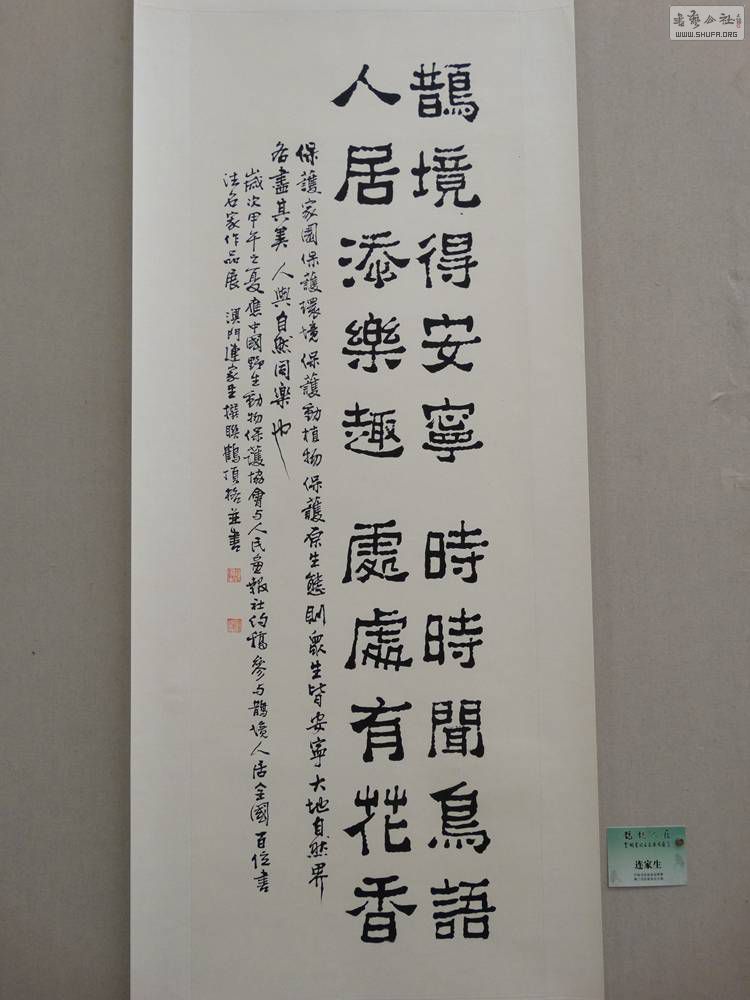 鵲境得安寧 時時聞鳥語
人居添樂趣 處處有花香
保護家園保護環境保護動植物保護原生態則眾生皆安寧大地自然界
各盡其美人與自然同樂也
歲次甲午之夏應中國野生動物保護協會与人民畫報社約稿參与鵲境人居全國百位書
法名家作品展 澳門連家生撰聯鶴頂格並書
连家生
書藝公社
WWW.SHUFA.ORG